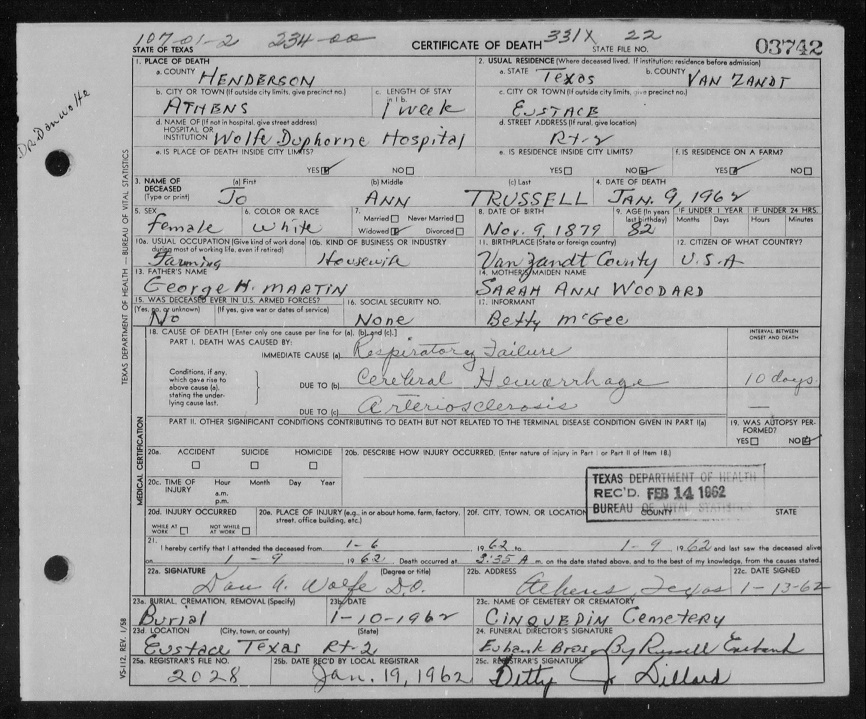 107-01-2 234-00 331X 22
STATE OF TEXAS CERTIFICATE OF DEATH STATE FILE NO. 03742
1. PLACE OF DEATH 2. USUAL RESIDENCE (Where deceased lived. If institution: residence before admission)
a. COUNTY HENDERSON a. STATE Texas b. COUNTY VAN ZANDT
b. CITY OR TOWN (If outside city limits, give precinct no.) c. LENGTH OF STAY in 1 b. c. CITY OR TOWN (If outside city limits, give precinct no.)
ATHENS 1 week EUSTACE
d. NAME OF (If not in hospital, give street address) d. STREET ADDRESS (If rural, give location)
HOSPITAL OR INSTITUTION Wolfe Duphorne Hospital Rt-2
e. IS PLACE OF DEATH INSIDE CITY LIMITS? e. IS RESIDENCE INSIDE CITY LIMITS? f. IS RESIDENCE ON A FARM?
YES NO YES NO YES NO
3. NAME OF DECEASED (Type or print) (a) First (b) Middle (c) Last 4. DATE OF DEATH
Jo ANN TRUSSELL JAN. 9, 1962
5. SEX 6. COLOR OR RACE 7. Married Never Married Widowed Divorced 8. DATE OF BIRTH 9. AGE (In years last birthday) IF UNDER 1 YEAR IF UNDER 24 HRS.
Months Days Hours Minutes
Female White Nov. 9, 1879 82
10a. USUAL OCCUPATION (Give kind of work done during most of working life, even if retired) 10b. KIND OF BUSINESS OR INDUSTRY 11. BIRTHPLACE (State or foreign country) 12. CITIZEN OF WHAT COUNTRY?
Farming Housewife Van Zandt County U.S.A
13. FATHER'S NAME 14. MOTHER'S MAIDEN NAME
George H. MARTIN SARAH ANN WOODARD
15. WAS DECEASED EVER IN U.S. ARMED FORCES? 16. SOCIAL SECURITY NO. 17. INFORMANT
(Yes, no, or unknown) (If yes, give war or dates of service)
No None Betty McGee
18. CAUSE OF DEATH [Enter only one cause per line for (a), (b), and (c).] INTERVAL BETWEEN ONSET AND DEATH
PART I. DEATH WAS CAUSED BY:
IMMEDIATE CAUSE (a) Respiratory Failure
Conditions, if any, which gave rise to above cause (a), stating the underlying cause last.
DUE TO (b) Cerebral Hemorrhage 10 days
DUE TO (c) Arteriosclerosis —
PART II. OTHER SIGNIFICANT CONDITIONS CONTRIBUTING TO DEATH BUT NOT RELATED TO THE TERMINAL DISEASE CONDITION GIVEN IN PART I(a) 19. WAS AUTOPSY PERFORMED?
YES NO
20a. ACCIDENT SUICIDE HOMICIDE 20b. DESCRIBE HOW INJURY OCCURRED. (Enter nature of injury in Part I or Part II of Item 18.)
20c. TIME OF INJURY Hour Month Day Year
a.m.
p.m.
TEXAS DEPARTMENT OF HEALTH
REC'D. FEB 14 1962
BUREAU OF VITAL STATISTICS
20d. INJURY OCCURRED 20e. PLACE OF INJURY (e.g., in or about home, farm, factory, street, office building, etc.) 20f. CITY, TOWN, OR LOCATION COUNTY STATE
WHILE AT WORK NOT WHILE AT WORK
21. I hereby certify that I attended the deceased from 1-6 1962 to 1-9 1962 and last saw the deceased alive
on 1-9 1962. Death occurred at 3:35 A m. on the date stated above, and to the best of my knowledge, from the causes stated.
22a. SIGNATURE (Degree or title) 22b. ADDRESS 22c. DATE SIGNED
Don A. Wolfe D.O. Athens, Texas 1-13-62
23a. BURIAL, CREMATION, REMOVAL (Specify) 23b. DATE 23c. NAME OF CEMETERY OR CREMATORY
Burial 1-10-1962 CINQUEDIM CEMETERY
23d. LOCATION (City, town, or county) (State) 24. FUNERAL DIRECTOR'S SIGNATURE
Eustace Texas Rt-2 Eubank Bros By Russell Eubank
25a. REGISTRAR'S FILE NO. 25b. DATE REC'D BY LOCAL REGISTRAR 25c. REGISTRAR'S SIGNATURE
2028 Jan. 19, 1962 Betty J Dillard
DR. Don Wolfe
TEXAS DEPARTMENT OF HEALTH — BUREAU OF VITAL STATISTICS
MEDICAL CERTIFICATION
VS-112, REV. 1/58